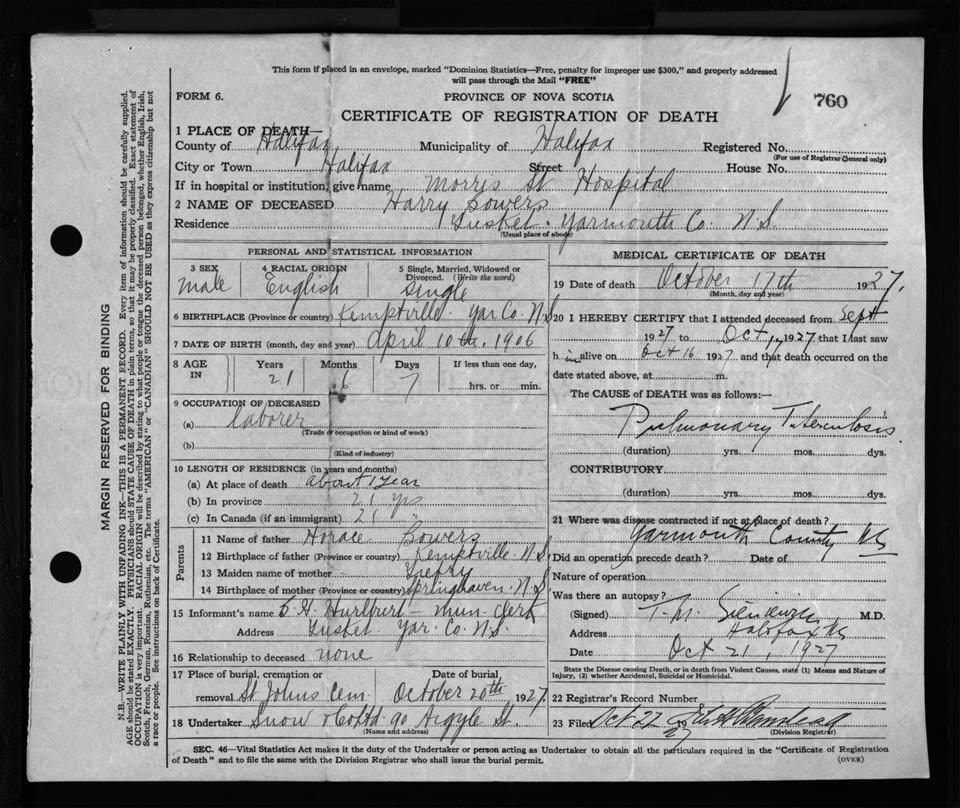 This form if placed in an envelope, marked "Dominion Statistics—Free, penalty for improper use $300," and properly addressed
will pass through the Mail "FREE"
FORM 6.
PROVINCE OF NOVA SCOTIA
760
CERTIFICATE OF REGISTRATION OF DEATH
1 PLACE OF DEATH—
County of Halifax Municipality of Halifax Registered No.
(For use of Registrar General only)
City or Town Halifax Street House No.
If in hospital or institution, give name Morris St Hospital
2 NAME OF DECEASED Harry Sowers
Residence Tusket. Yarmouth Co. N.S.
(Usual place of abode)
PERSONAL AND STATISTICAL INFORMATION
3 SEX male
4 RACIAL ORIGIN English
5 Single, Married, Widowed or
Divorced. (Write the word)
single
6 BIRTHPLACE (Province or country) Kemptville. Yar Co. N.S
7 DATE OF BIRTH (month, day and year) April 10th. 1906
8 AGE IN Years 21 Months 6 Days 7 If less than one day,
hrs. or min.
9 OCCUPATION OF DECEASED
(a) laborer
(Trade or occupation or kind of work)
(b)
(Kind of industry)
10 LENGTH OF RESIDENCE (in years and months)
(a) At place of death about 1 year
(b) In province 21 yrs
(c) In Canada (if an immigrant) 21 "
Parents
11 Name of father Horace Sowers
12 Birthplace of father (Province or country) Kemptville. N.S.
13 Maiden name of mother
14 Birthplace of mother (Province or country) Springhaven. N.S
15 Informant's name Hurlburt — mun. clerk
Address Tusket. Yar. Co. N.S.
16 Relationship to deceased none
17 Place of burial, cremation or Date of burial,
removal St Johns Cem. October 20th 1927
18 Undertaker Snow & Co Ltd 90 Argyle St.
(Name and address)
MEDICAL CERTIFICATE OF DEATH
19 Date of death October 17th 1927.
(Month, day and year)
20 I HEREBY CERTIFY that I attended deceased from Sept
1927 to Oct 17 1927 that I last saw
h im alive on Oct 16 1927 and that death occurred on the
date stated above, at m.
The CAUSE of DEATH was as follows:—
Pulmonary Tuberculosis
(duration) yrs. mos. dys.
CONTRIBUTORY
(duration) yrs. mos. dys.
21 Where was disease contracted if not at place of death?
Yarmouth County NS
Did an operation precede death? Date of
Nature of operation
Was there an autopsy?
(Signed) T. M. Sieniewicz M.D.
Address Halifax NS
Date Oct 21, 1927
State the Disease causing Death, or in death from Violent Causes, state (1) Means and Nature of
Injury, (2) whether Accidental, Suicidal or Homicidal.
22 Registrar's Record Number
23 Filed Oct 22 1927
(Division Registrar)
SEC. 46—Vital Statistics Act makes it the duty of the Undertaker or person acting as Undertaker to obtain all the particulars required in the "Certificate of Registration
of Death" and to file the same with the Division Registrar who shall issue the burial permit.
(OVER)
MARGIN RESERVED FOR BINDING
N.B.—WRITE PLAINLY WITH UNFADING INK—THIS IS A PERMANENT RECORD. Every item of information should be carefully supplied.
AGE should be stated EXACTLY. PHYSICIANS should STATE CAUSE OF DEATH in plain terms, so that it may be properly classified. Exact statement of
OCCUPATION is very important. RACIAL ORIGIN will be described by stating to what people or tongue the deceased person belonged, whether English, Irish,
Scotch, French, German, Russian, Ruthenian, etc. The terms "AMERICAN" or "CANADIAN" SHOULD NOT BE USED as they express citizenship but not
a race or people. See instructions on back of Certificate.